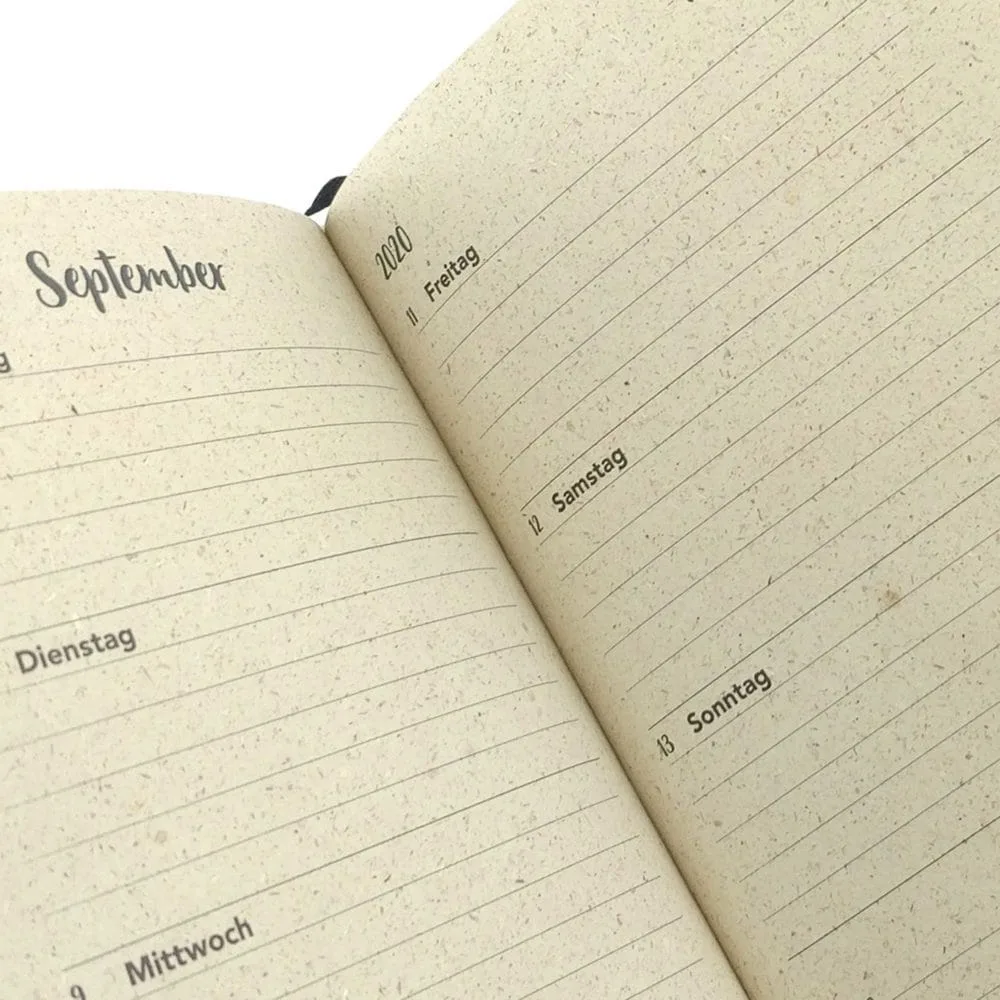 September
g
Dienstag
9 Mittwoch
2020
11 Freitag
12 Samstag
13 Sonntag